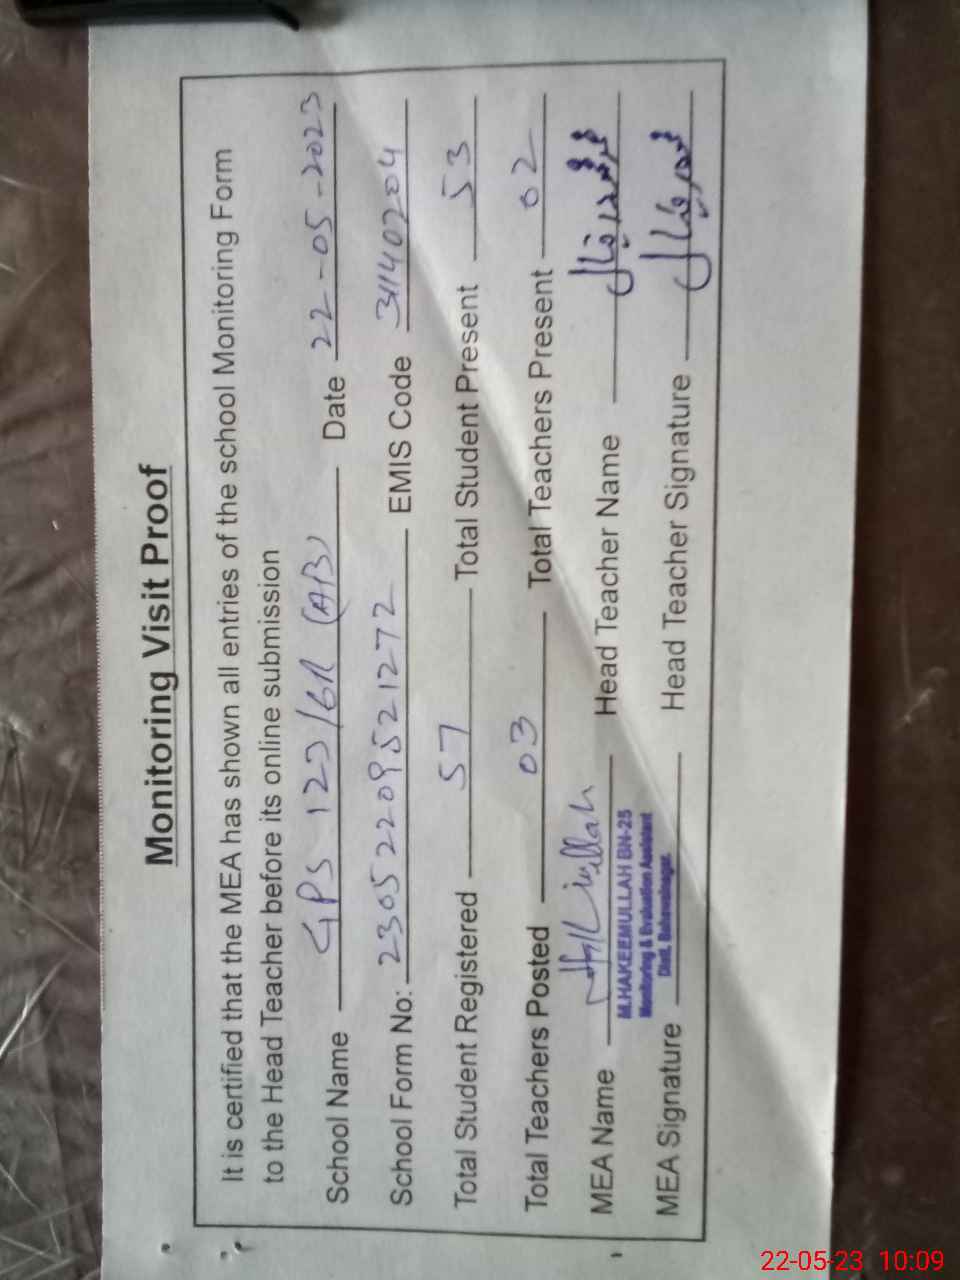 Monitoring Visit Proof
It is certified that the MEA has shown all entries of the school Monitoring Form
to the Head Teacher before its online submission
School Name GPS 123/6R (AB) Date 22-05-2023
School Form No: 23052209521272 EMIS Code 31140204
Total Student Registered 57 Total Student Present 53
Total Teachers Posted 03 Total Teachers Present 02
MEA Name Head Teacher Name
M.HAKEEMULLAH BN-25
Monitoring & Evaluation Assistant
Distt. Bahawalnagar.
MEA Signature Head Teacher Signature
22-05-23 10:09